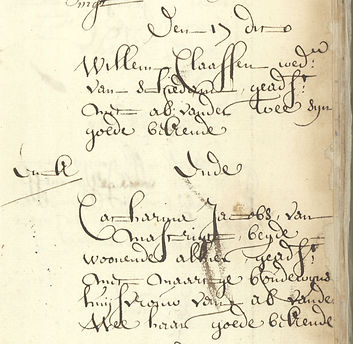 Den 17 dito
Willem Claassen wedr
van Schiedam, geadst
met ab. vander Wee sijn
goede bekende
Ende
Catharijna Jacobs, van
Mastrigt, beyde
woonende alhier geadst
met maartge boudewijns
huijsvrouw van ab vander
Wee haar goede bekende